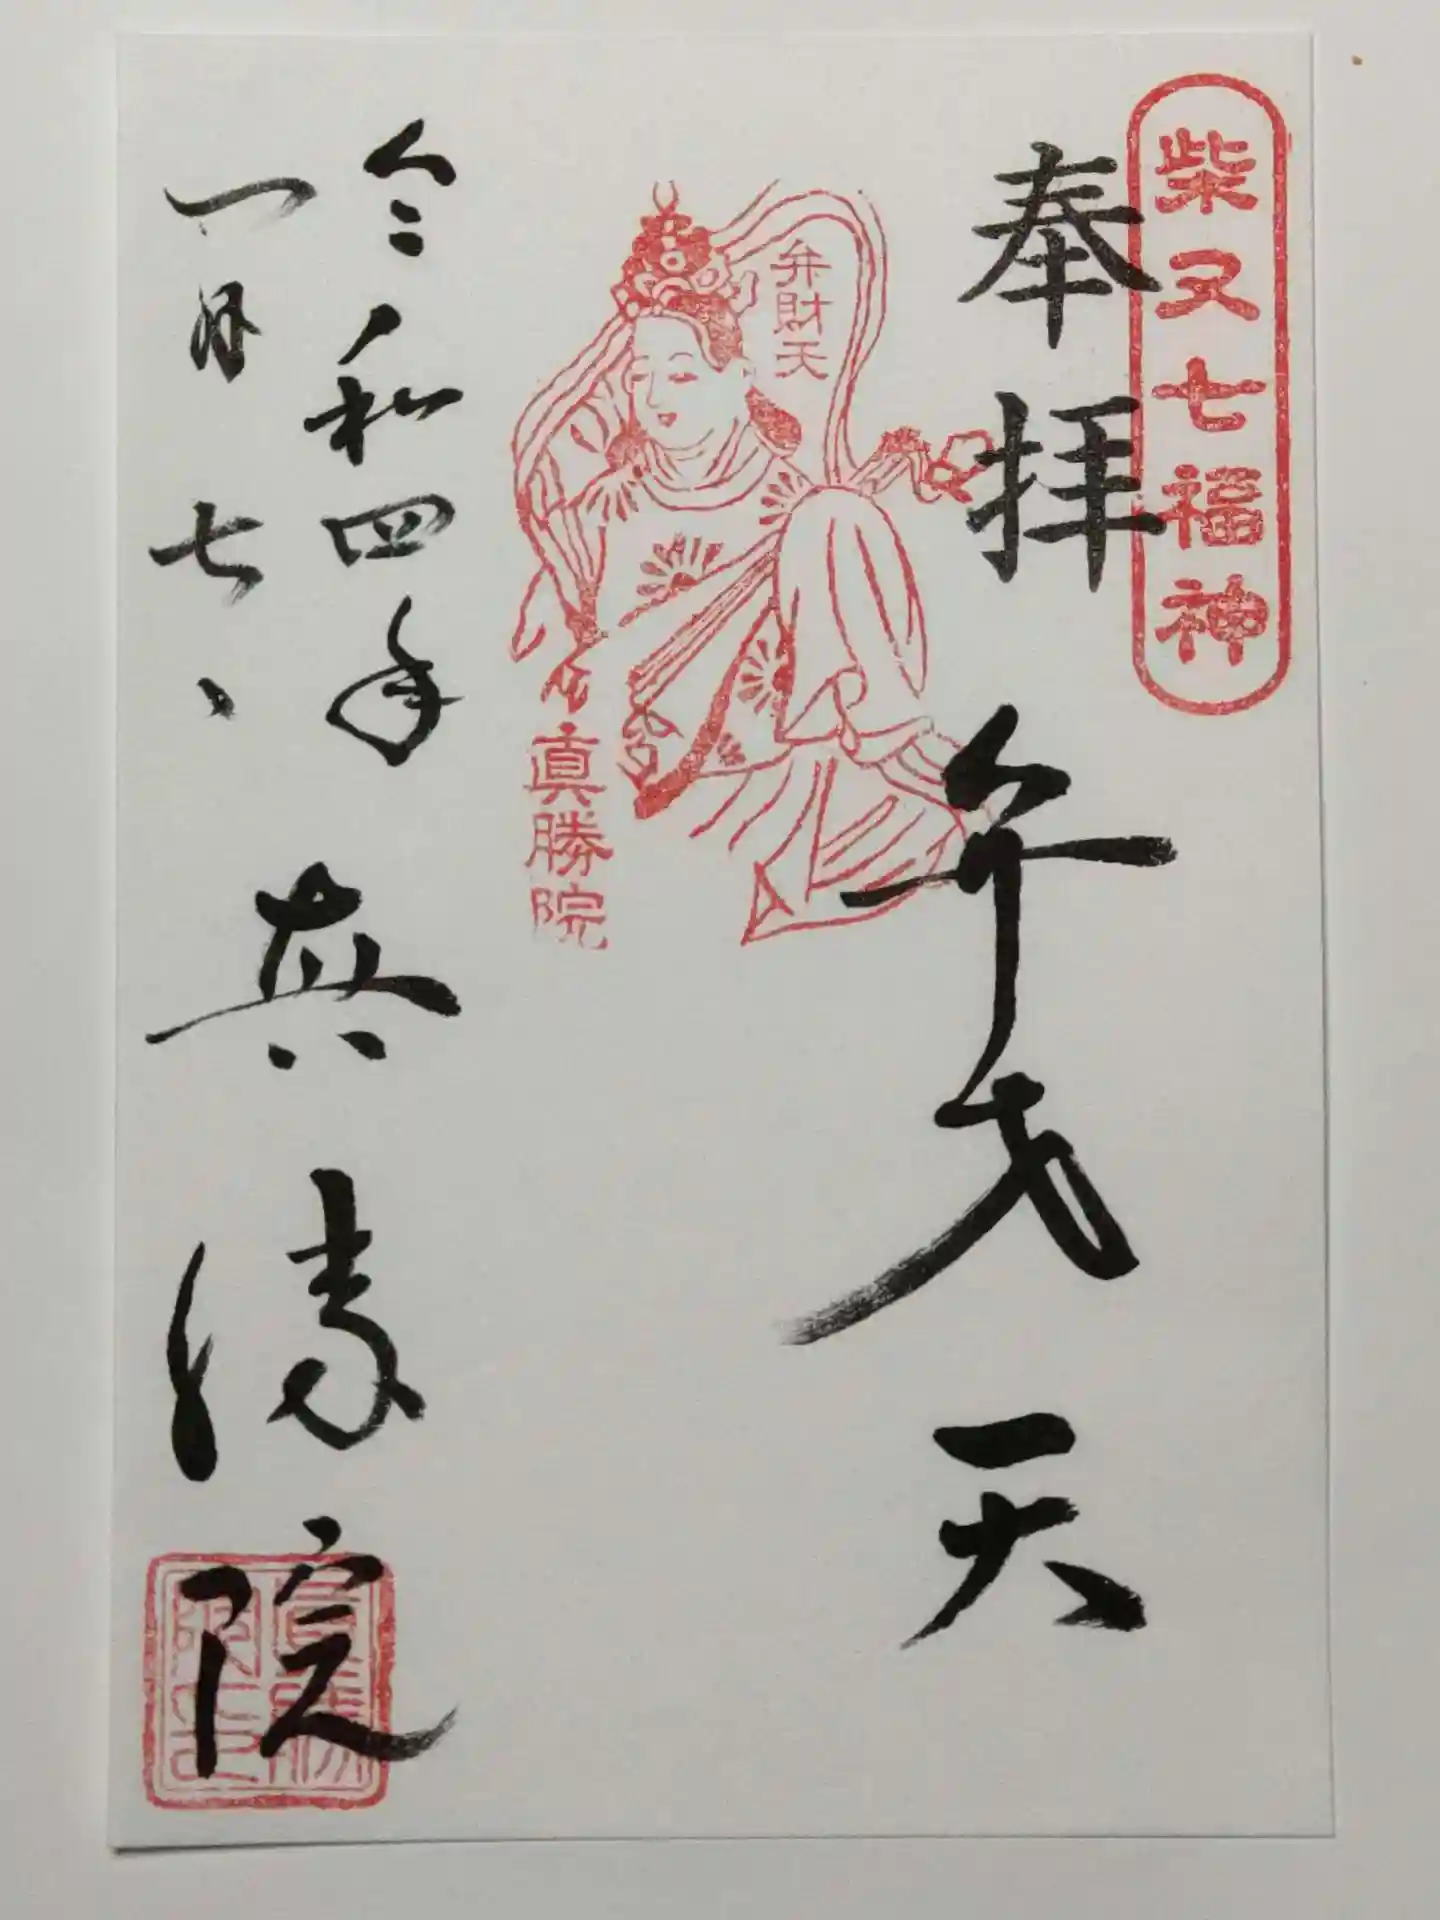 柴又七福神
奉拝
弁才天
弁財天
真勝院
令和四年
一月七、
真勝院